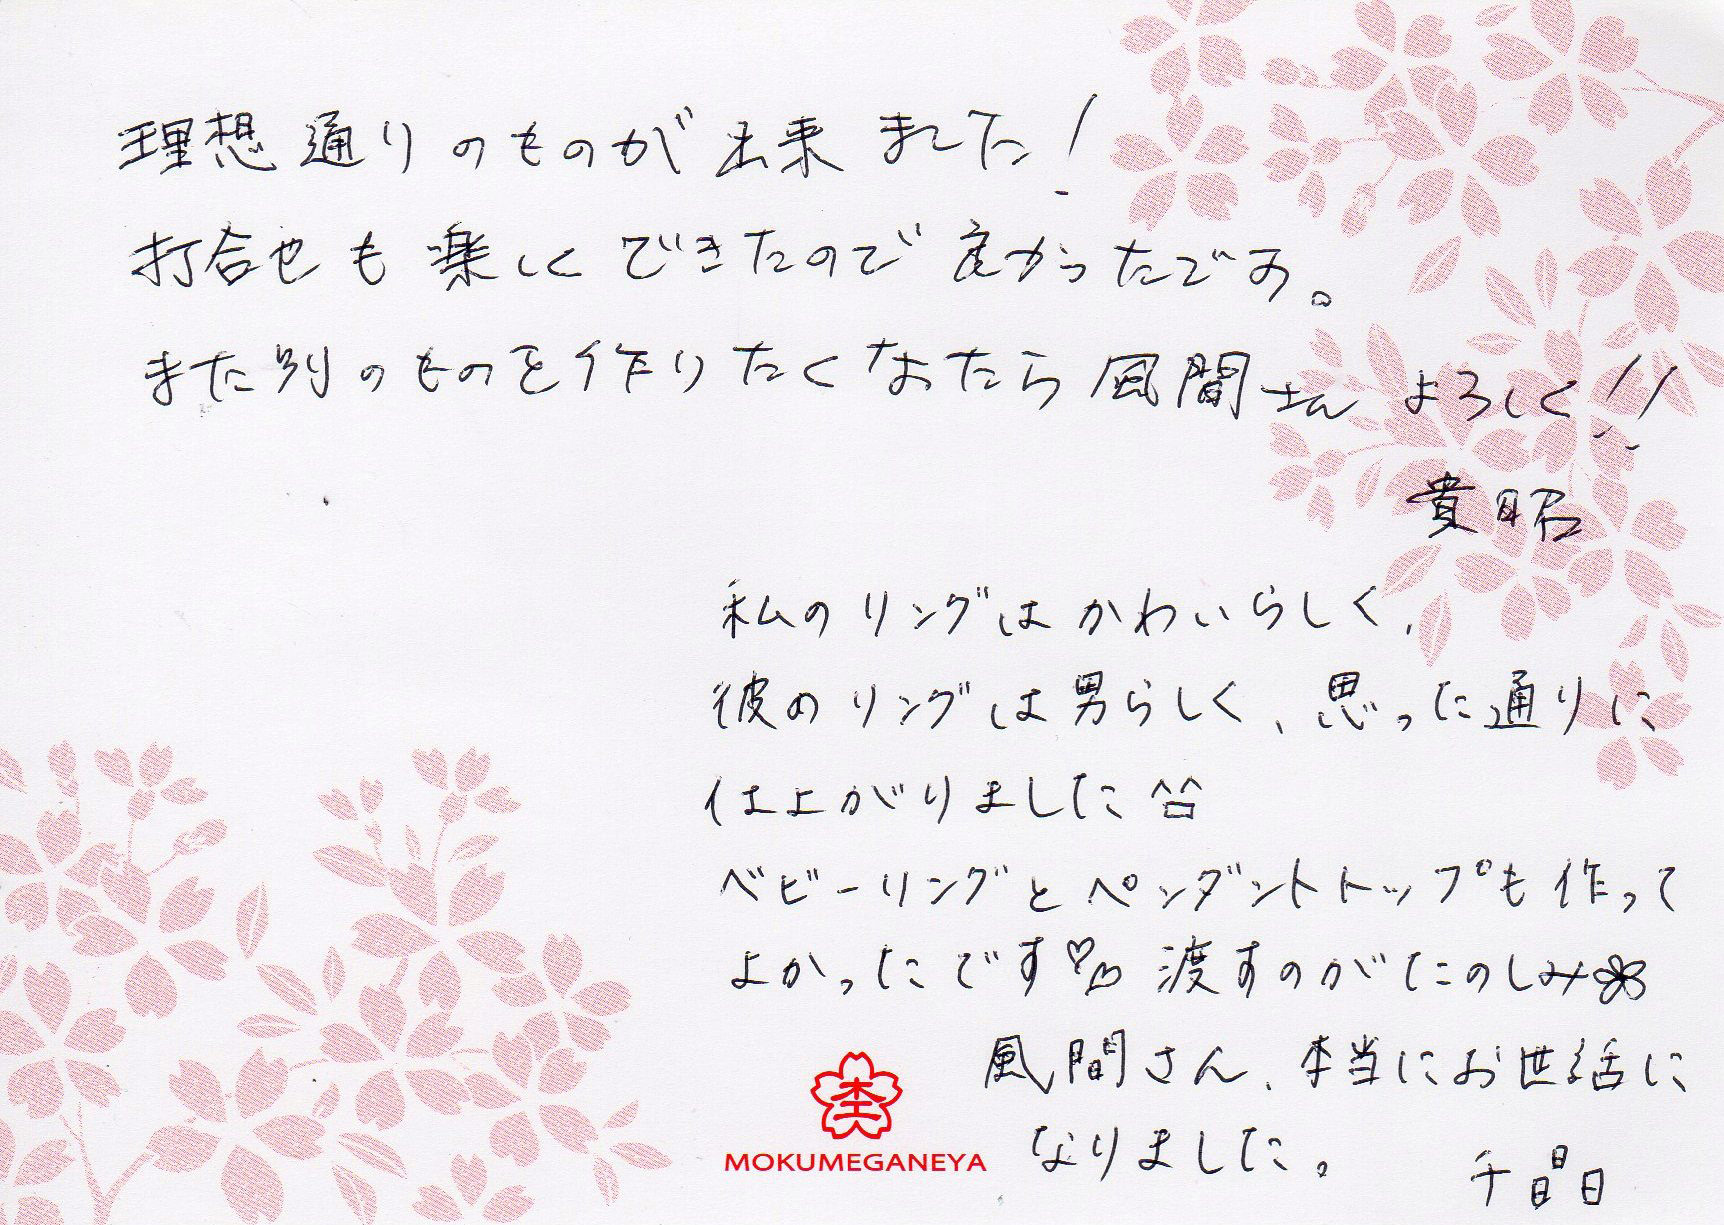 理想通りのものが出来ました!
打合せも楽しくできたので良かったです。
また別のものを作りたくなったら風間さんよろしく!!
貴昭
私のリングはかわいらしく、
彼のリングは男らしく、思った通りに
仕上がりました^^
ベビーリングとペンダントトップも作って
よかったです♡♡ 渡すのがたのしみ✿
風間さん、本当にお世話に
なりました。
千晶
杢
MOKUMEGANEYA